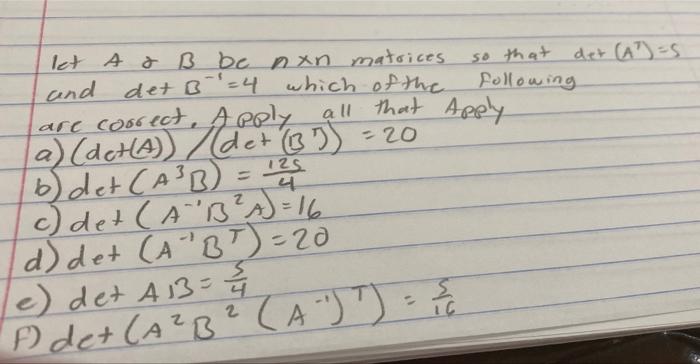 let A & B be nxn matrices so that det (Aᵀ)=5
and det B⁻¹=4 which of the following
are correct. Apply all that Apply
a) (det(A)) / (det (Bᵀ)) = 20
b) det (A³B) = 125/4
c) det (A⁻¹B²A)=16
d) det (A⁻¹Bᵀ)=20
e) det AB= 5/4
F) det (A²B² (A⁻¹)ᵀ) = 5/16